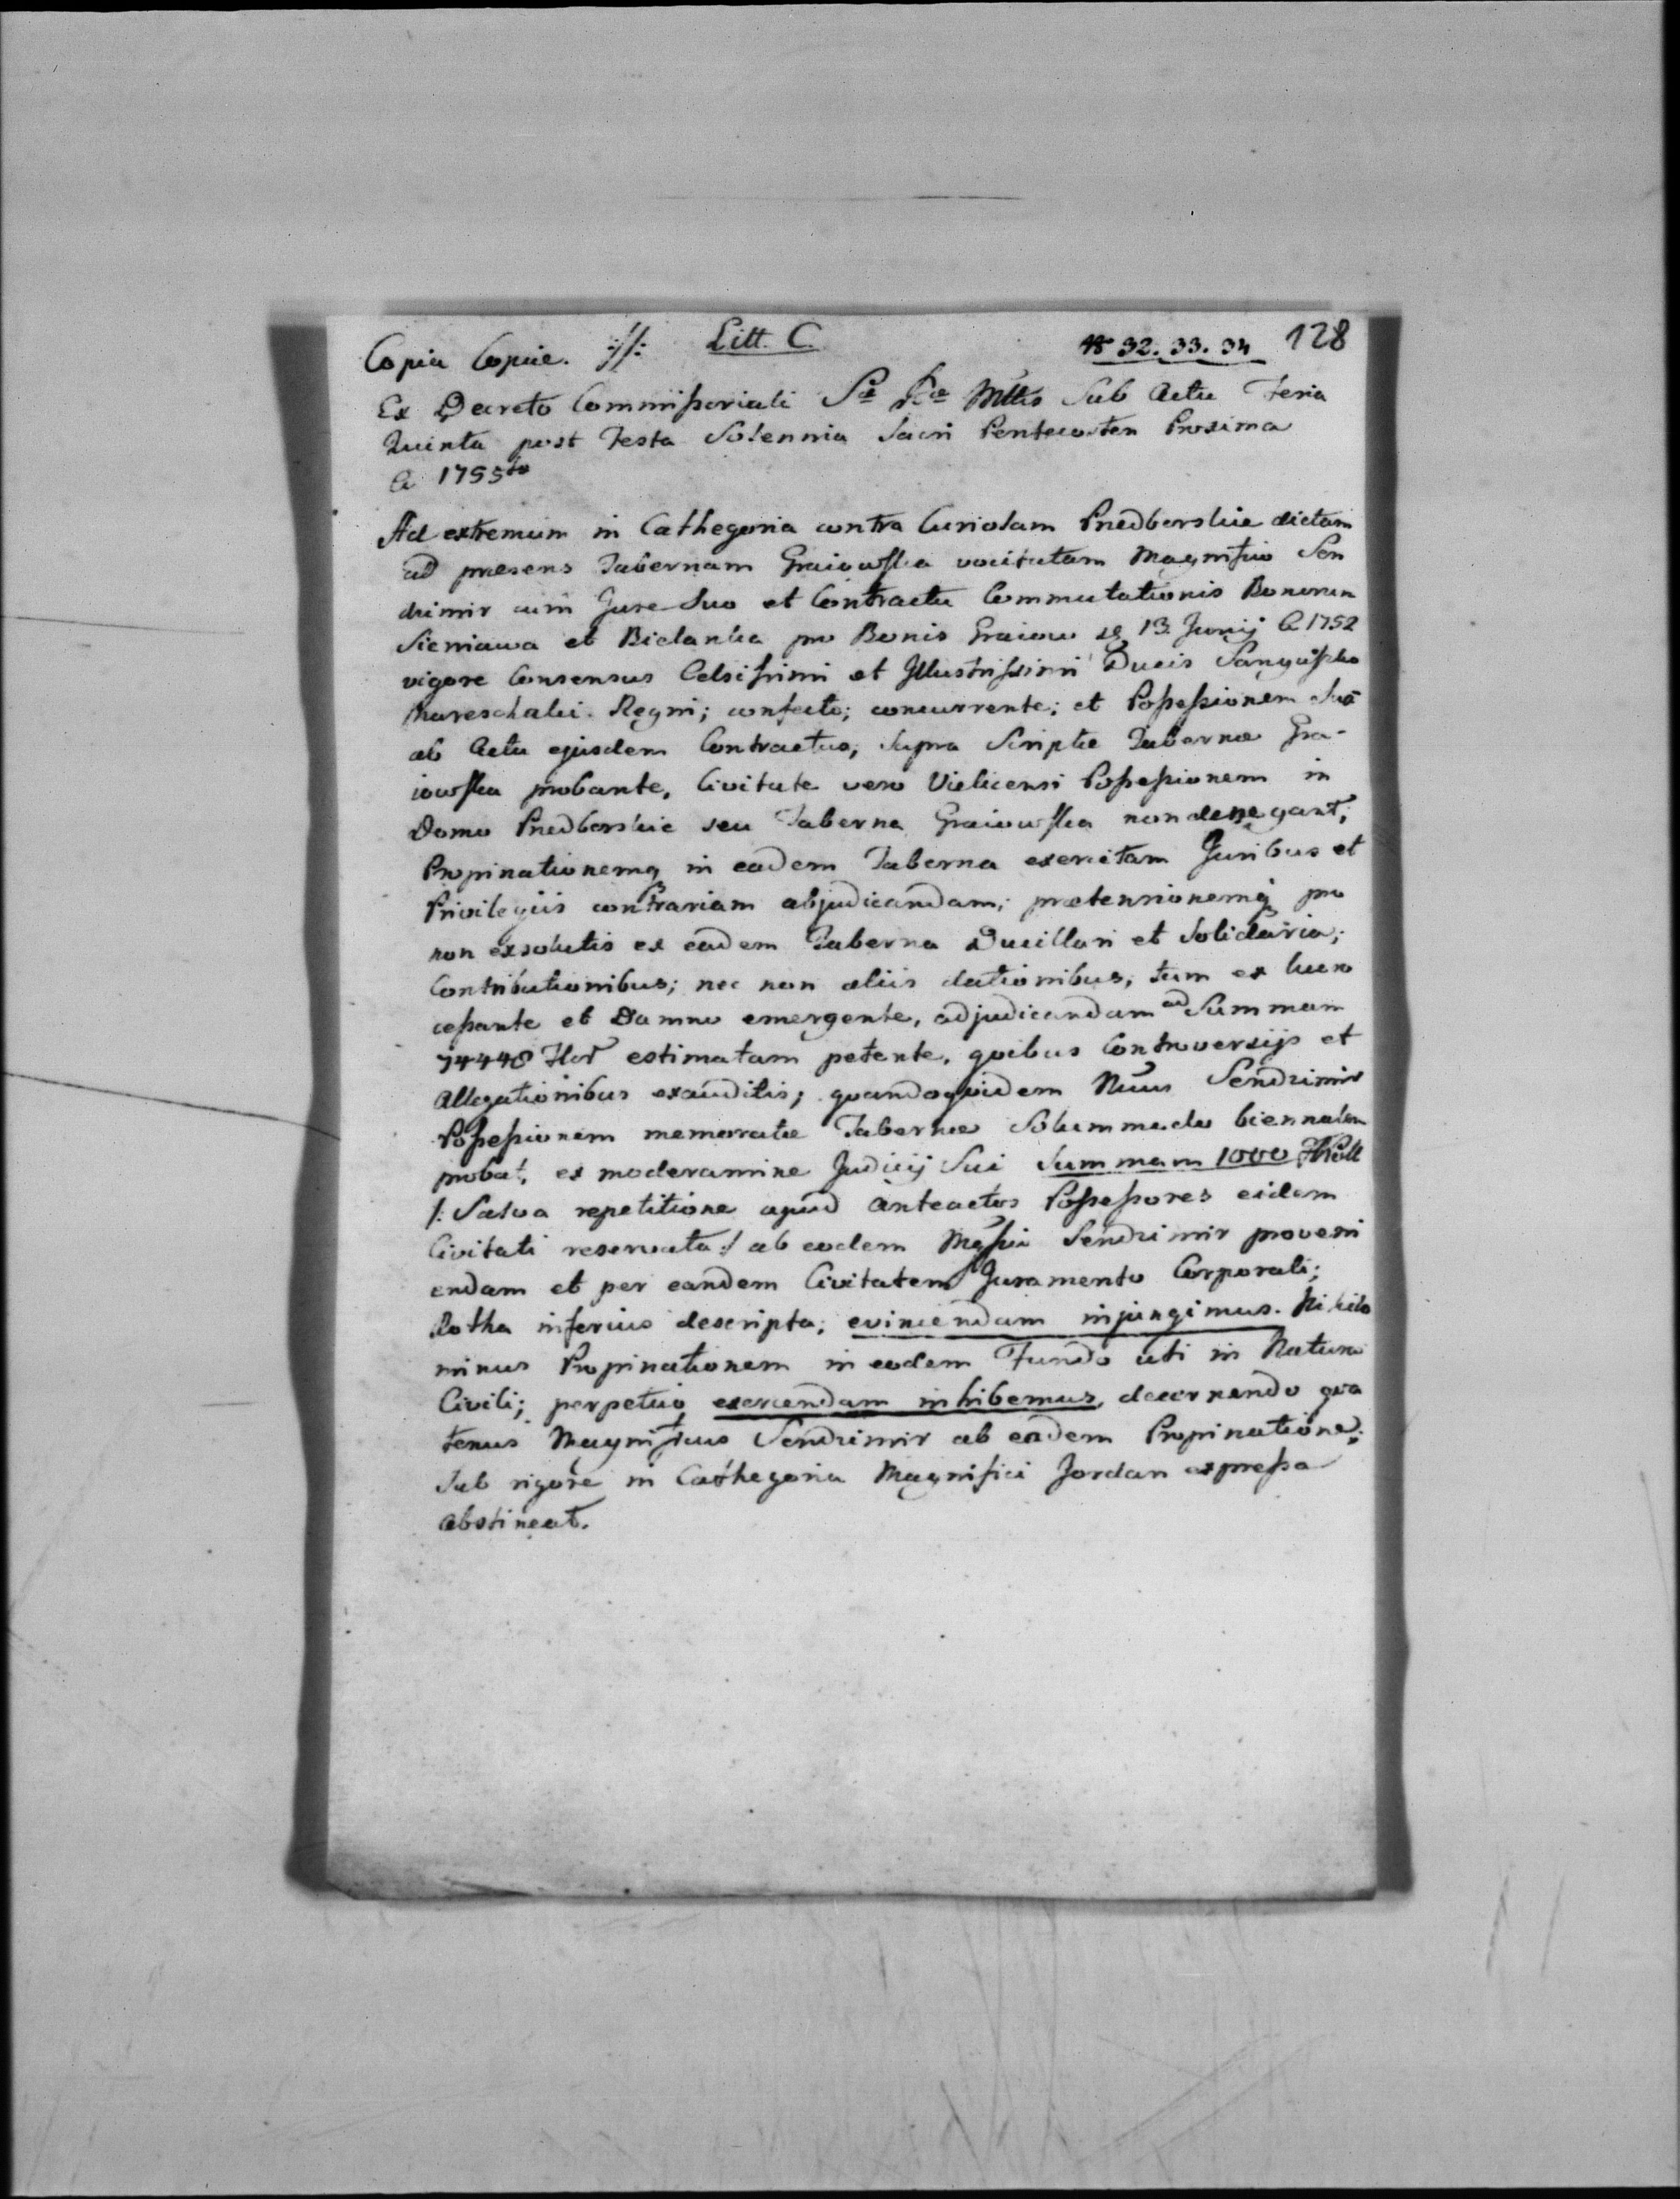 Copia Copiae. ://: Litt. C. 32. 33. 34 128
Ex Decreto Commissoriali Sae Rae Mttis Sub Actu Feria
Quinta post Festa Solennia Sacri Pentecosten Proxima
A 1755to
Ad extremum in Cathegoria contra Curiolam Przedborskie dictam
ad praesens Tabernam Graiowska vocitatam Magnifico Sen
drimir cum Jure Suo et Contractu Commutationis Bonorum
Sieniawa et Bielanka pro Bonis Graiow 13 Junij A 1752
vigore Consensus Celsissimi et Illustrissimi Ducis Sanguszko
Mareschalci Regni; confecto; concurrente; et Possessionem Suã
ab Actu ejusdem Contractus, Supra Scriptae Tabernae Gra-
iowska probante, Civitate vero Vielicensi Possessionem in
Domo Przedborskie seu Taberna Graiowska non denegant;
Propinationemq in eadem Taberna exercitam Juribus et
Privilegiis contrariam abjudicandam; praetensionemq pro
non exsolutis ex eadem Taberna Ducillari et Solidaria;
Contributionibus; nec non aliis dationibus, tum ex lucro
cessante et Damno emergente, adjudicandam ad Summam
74448 Flor estimatam petente, quibus Controversijs et
Allegationibus exauditis; quandoquidem Mcus Sendzimir
Possessionem memoratae Tabernae Solummodo biennalem
probat, ex moderamine Judicij Sui Summam 1000
/: Salva repetitione apud anteactos Possessores eidem
Civitati reservata :/ ab eodem Mgfco Sendzimir proveni
endam et per eandem Civitatem Juramento Corporali;
Rotha inferius descripta; evincendam injungimus. Nihilo
minus Propinationem in eodem Fundo uti in Natura
Civili; perpetuo exercendam inhibemus, decernendo qua
tenus Magnificus Sendzimir ab eadem Propinatione;
Sub rigore in Cathegoria Magnifici Jordan expressa
abstineat.